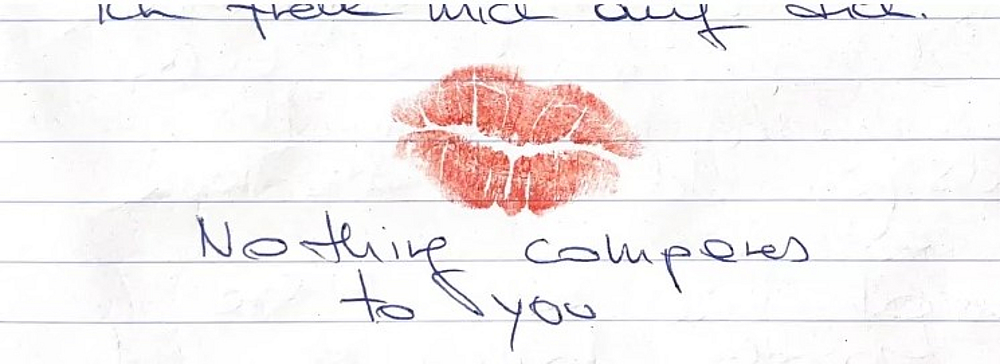 Ich freue mich auf dich.
Nothing compares
to you